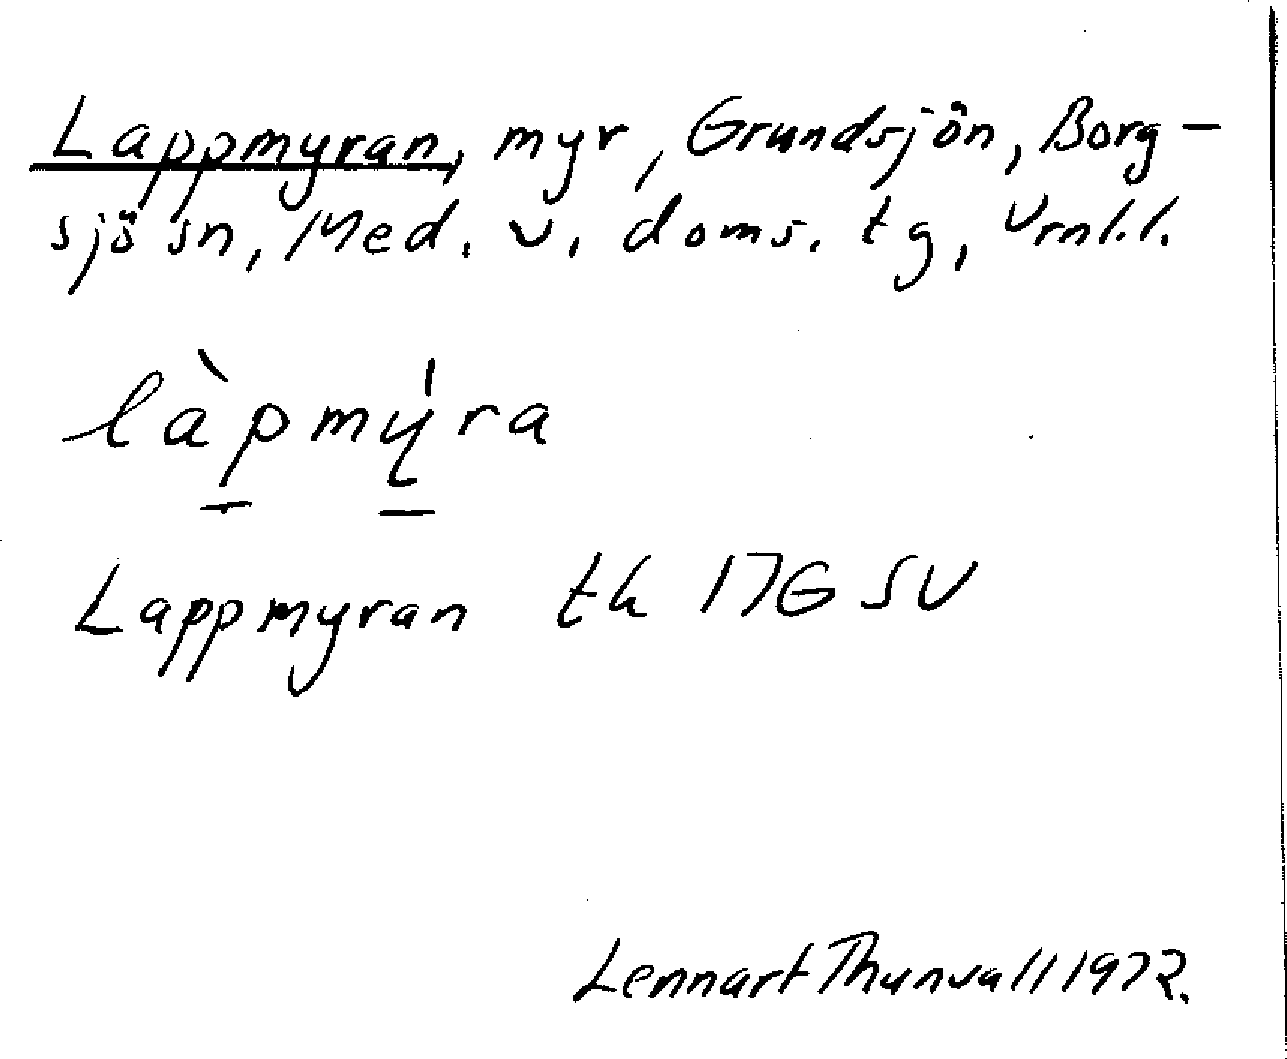 Lappmyran, myr, Grundsjön, Borg-
sjö sn, Med. v. doms. tg, Vrnl.l.
làpmy̍ra
Lappmyran tk 17G SV
Lennart Thunvall 1972.